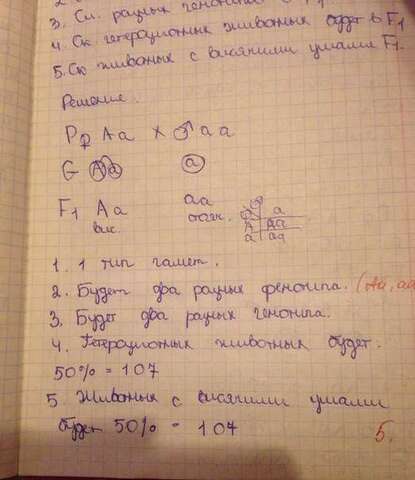 3. Ск. разных генотипов в F₁
4. Ск гетерозиготных животных будет в F₁
5. Ск животных с висячими ушами F₁.
Решение.
P ♀ Aa × ♂ aa
G A a a
F₁ Aa aa
вис. стояч.
♀ ♂ a
A Aa
a aa
1. 1 тип гамет.
2. Будет два разных фенотипа. (Aa, aa
3. Будет два разных генотипа.
4. Гетерозиготных животных будет.
50% = 107
5 Животных с висячими ушами
будет 50% = 107
5.